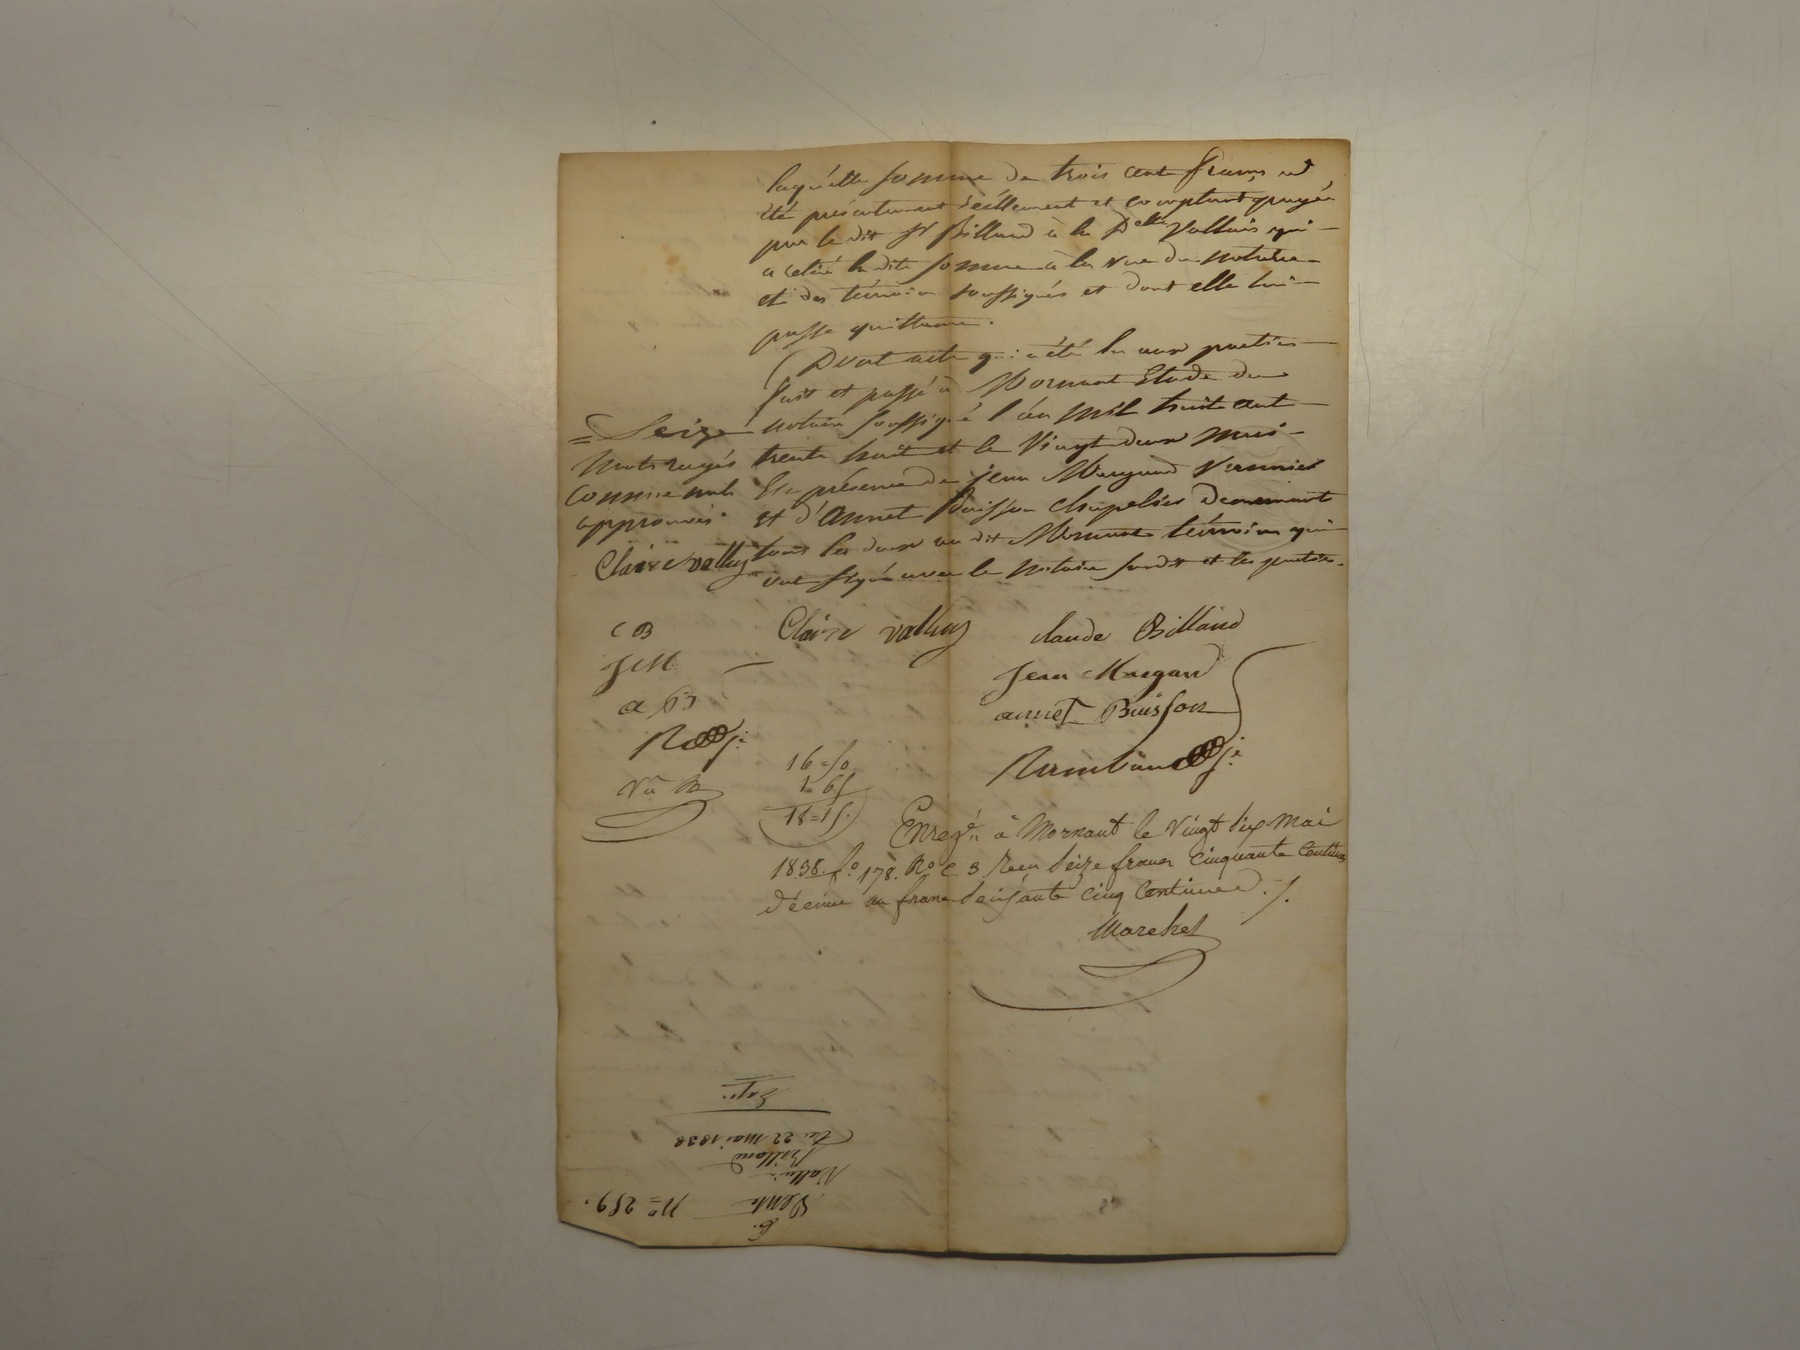 laquelle somme de trois cent francs a
été présentement réellement et comptant payée
par le dit Sr Billand à la Delle Valluis qui
a retiré la dite somme à la vue du notaire
et des témoins soussignés et dont elle lui
passe quittance.
Dont acte qui a été lu aux parties
fait et passé à Mornant Etude du
notaire soussigné l'an mil huit cent
trente huit et le Vingt deux Mai
En présence de jean Margand
et d'Annet Buisson chapelier demeurant
tous les deux au dit Mornant témoins qui
ont signé avec le Notaire susdit et les parties.
= Seize
mots rayés
comme nuls
approuvés
Claire valluy
C B
J M
a B
Claire valluy
claude Billand
Jean Margand
annet Buisson
16=50
1 65
18=15.
Enregé. à Mornant le vingt six Mai
1838. fo. 178. Ro. C 3. Reçu Seize francs cinquante Centimes
décime un franc soixante cinq Centimes.
Marchet
6.
Vente No= 259.
Valluis
Billand
Du 22 mai 1838
Exp.